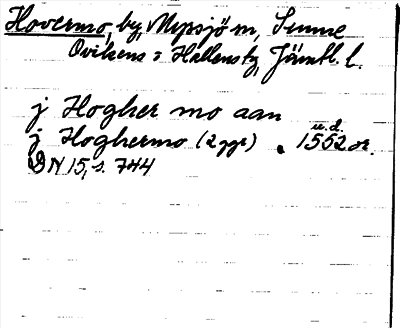 Hovermo, by, Myssjö sn, Sunne
Ovikens o Hallens tg, Jämtl. l.
j Hogher mo aan
u.d.
j Hoghermo (2 ggr) . 1552 or.
DN 15, s. 744